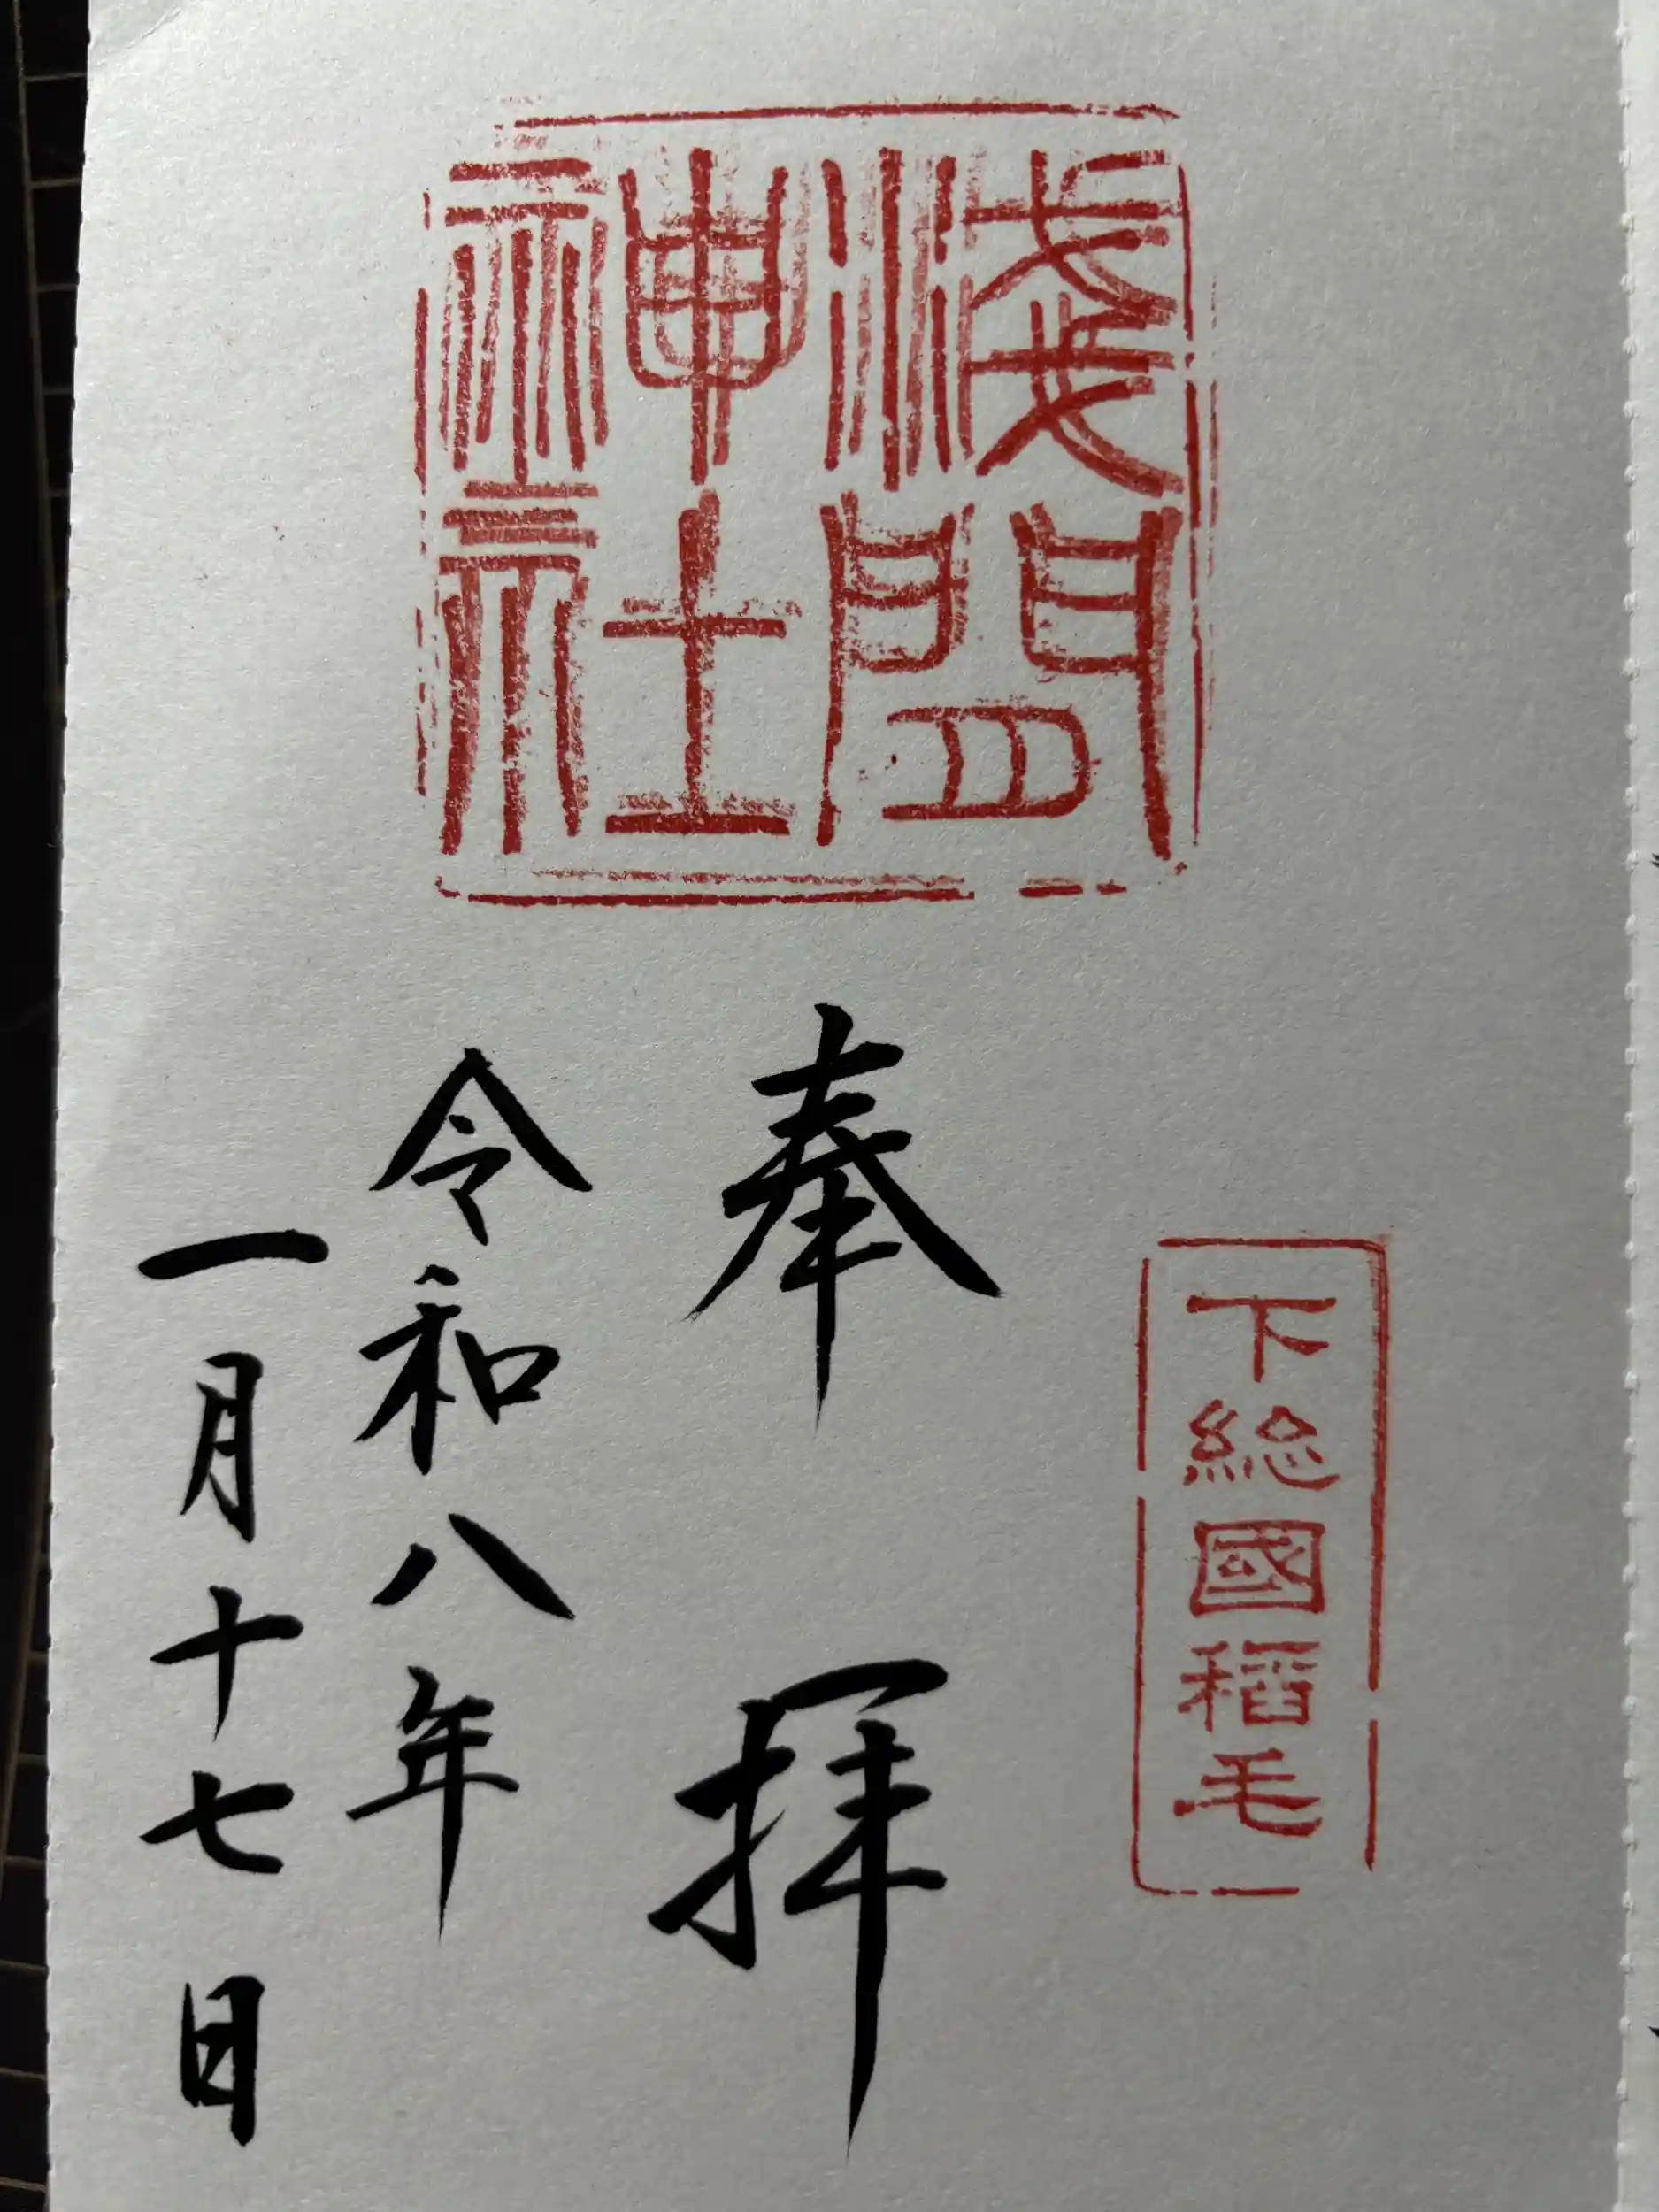 淺間
神社
下總國稻毛
奉拝
令和八年
一月十七日